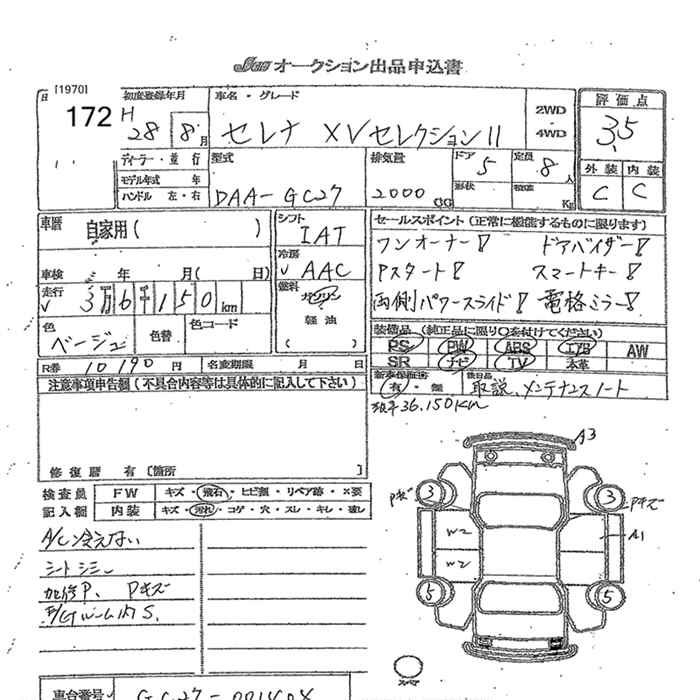 JU オークション出品申込書
[1970]
172
初度登録年月 車名・グレード
H 28 8月 セレナ XVセレクションII 2WD ・ 4WD
評価点
3.5
ディーラー・並行 型式 排気量 ドア 定員
モデル年式 年 5 8人
ハンドル 左・右 DAA-GC27 2000 CC 形状 積載 Kg
外装 内装
C C
車歴 自家用( )
シフト IAT
冷房 AAC
セールスポイント(正常に機能するものに限ります)
ワンオーナー! ドアバイザー!
Pスタート! スマートキー!
両側パワースライド! 電格ミラー!
車検 年 月( 日)
走行 3万6千150km
燃料 ガソリン
軽油
( )
色 ベージュ 色替 色コード
装備品(純正品に限り○を付けてください)
PS PW ABS エアB AW
SR ナビ TV 本革
R番 10190円 名変期限 月 日
新車保証書 有・無 後日品 取説、メンテナンスノート
36.150Km
注意事項申告欄(不具合内容等は具体的に記入して下さい)
修復歴 有〔箇所 〕
検査員 FW キズ・飛石・ヒビ割・リペア跡・X要
記入欄 内装 キズ・汚れ・コゲ・穴・スレ・キレ・破レ
A/C冷えない
シートシミ
加修P、Pキズ
A3
3 3
Pキズ
W2 A1
W2
5 5
スペア
車台番号 GC27-